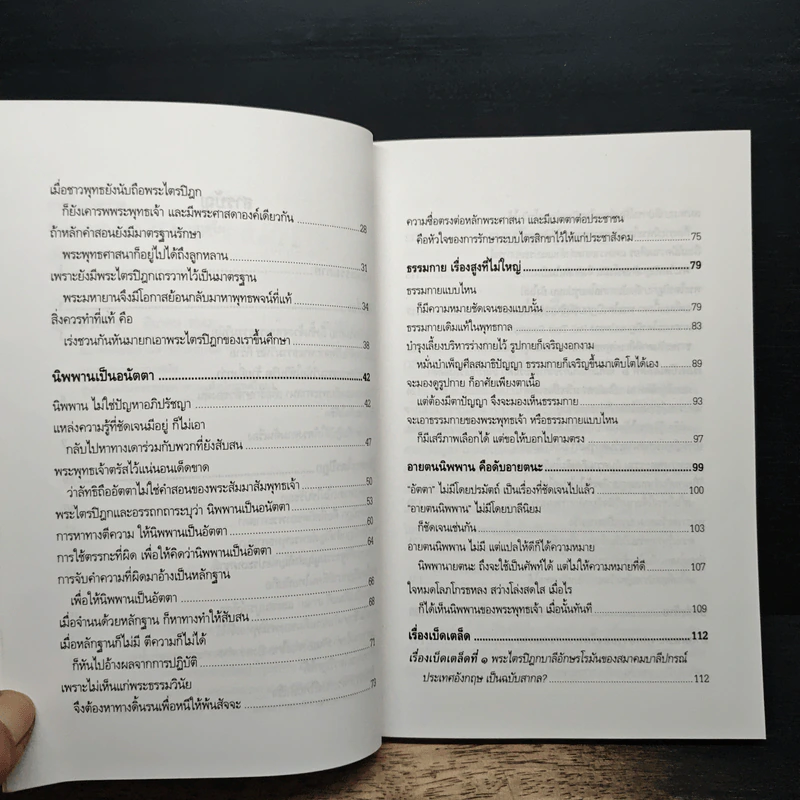 เมื่อชาวพุทธยังนับถือพระไตรปิฎก
ก็ยังเคารพพระพุทธเจ้า และมีพระศาสดาองค์เดียวกัน 28
ถ้าหลักคำสอนยังมีมาตรฐานรักษา
พระพุทธศาสนาก็อยู่ไปได้ถึงลูกหลาน 31
เพราะยังมีพระไตรปิฎกเถรวาทไว้เป็นมาตรฐาน
พระมหายานจึงมีโอกาสย้อนกลับมาหาพุทธพจน์ที่แท้ 34
สิ่งควรทำที่แท้ คือ
เร่งชวนกันหันมายกเอาพระไตรปิฎกของเราขึ้นศึกษา 38
นิพพานเป็นอนัตตา 42
นิพพาน ไม่ใช่ปัญหาอภิปรัชญา 42
แหล่งความรู้ที่ชัดเจนมีอยู่ ก็ไม่เอา
กลับไปหาทางเดาร่วมกับพวกที่ยังสับสน 47
พระพุทธเจ้าตรัสไว้แน่นอนเด็ดขาด
ว่าลัทธิถืออัตตาไม่ใช่คำสอนของพระสัมมาสัมพุทธเจ้า 50
พระไตรปิฎกและอรรถกถาระบุว่า นิพพานเป็นอนัตตา 53
การหาทางตีความ ให้นิพพานเป็นอัตตา 60
การใช้ตรรกะที่ผิด เพื่อให้คิดว่านิพพานเป็นอัตตา 64
การจับคำความที่ผิดมาอ้างเป็นหลักฐาน
เพื่อให้นิพพานเป็นอัตตา 66
เมื่อจำนนด้วยหลักฐาน ก็หาทางทำให้สับสน 68
เมื่อหลักฐานก็ไม่มี ตีความก็ไม่ได้
ก็หันไปอ้างผลจากการปฏิบัติ 71
เพราะไม่เห็นแก่พระธรรมวินัย
จึงต้องหาทางดิ้นรนเพื่อหนีให้พ้นสัจจะ 73
ความซื่อตรงต่อหลักพระศาสนา และมีเมตตาต่อประชาชน
คือหัวใจของการรักษาระบบไตรสิกขาไว้ให้แก่ประชาสังคม 75
ธรรมกาย เรื่องสูงที่ไม่ใหญ่ 79
ธรรมกายแบบไหน
ก็มีความหมายชัดเจนของแบบนั้น 79
ธรรมกายเดิมแท้ในพุทธกาล 83
บำรุงเลี้ยงบริหารร่างกายไว้ รูปกายก็เจริญงอกงาม
หมั่นบำเพ็ญศีลสมาธิปัญญา ธรรมกายก็เจริญขึ้นมาเติบโตได้เอง 89
จะมองดูรูปกาย ก็อาศัยเพียงตาเนื้อ
แต่ต้องมีตาปัญญา จึงจะมองเห็นธรรมกาย 93
จะเอาธรรมกายของพระพุทธเจ้า หรือธรรมกายแบบไหน
ก็มีเสรีภาพเลือกได้ แต่ขอให้บอกไปตามตรง 97
อายตนนิพพาน คือดับอายตนะ 99
"อัตตา" ไม่มีโดยปรมัตถ์ เป็นเรื่องที่ชัดเจนไปแล้ว 100
"อายตนนิพพาน" ไม่มีโดยบาลีนิยม
ก็ชัดเจนเช่นกัน 103
อายตนนิพพาน ไม่มี แต่แปลให้ดีก็ได้ความหมาย
นิพพานายตนะ ถึงจะใช้เป็นศัพท์ได้ แต่ไม่ให้ความหมายที่ดี 107
ใจหมดโลภโกรธหลง สว่างโล่งสดใส เมื่อไร
ก็ได้เห็นนิพพานของพระพุทธเจ้า เมื่อนั้นทันที 109
เรื่องเบ็ดเตล็ด 112
เรื่องเบ็ดเตล็ดที่ ๑ พระไตรปิฎกบาลีอักษรโรมันของสมาคมบาลีปกรณ์
ประเทศอังกฤษ เป็นฉบับสากล? 112